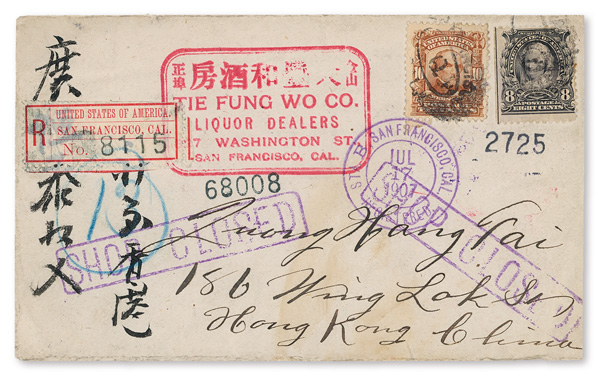 UNITED STATES OF AMERICA.
SAN FRANCISCO, CAL.
R
No. 8115
正埠
房酒和
金山
TIE FUNG WO CO.
LIQUOR DEALERS
7 WASHINGTON ST.
SAN FRANCISCO, CAL.
UNITED STATES OF AMERICA
10
8
8
POSTAGE
EIGHT CENTS
2725
SAN FRANCISCO, CAL.
JUL
17
1907
68008
SHOP CLOSED
CLOSED
廣
香港
Quong Hang Tai
186 Wing Lok St
Hong Kong China